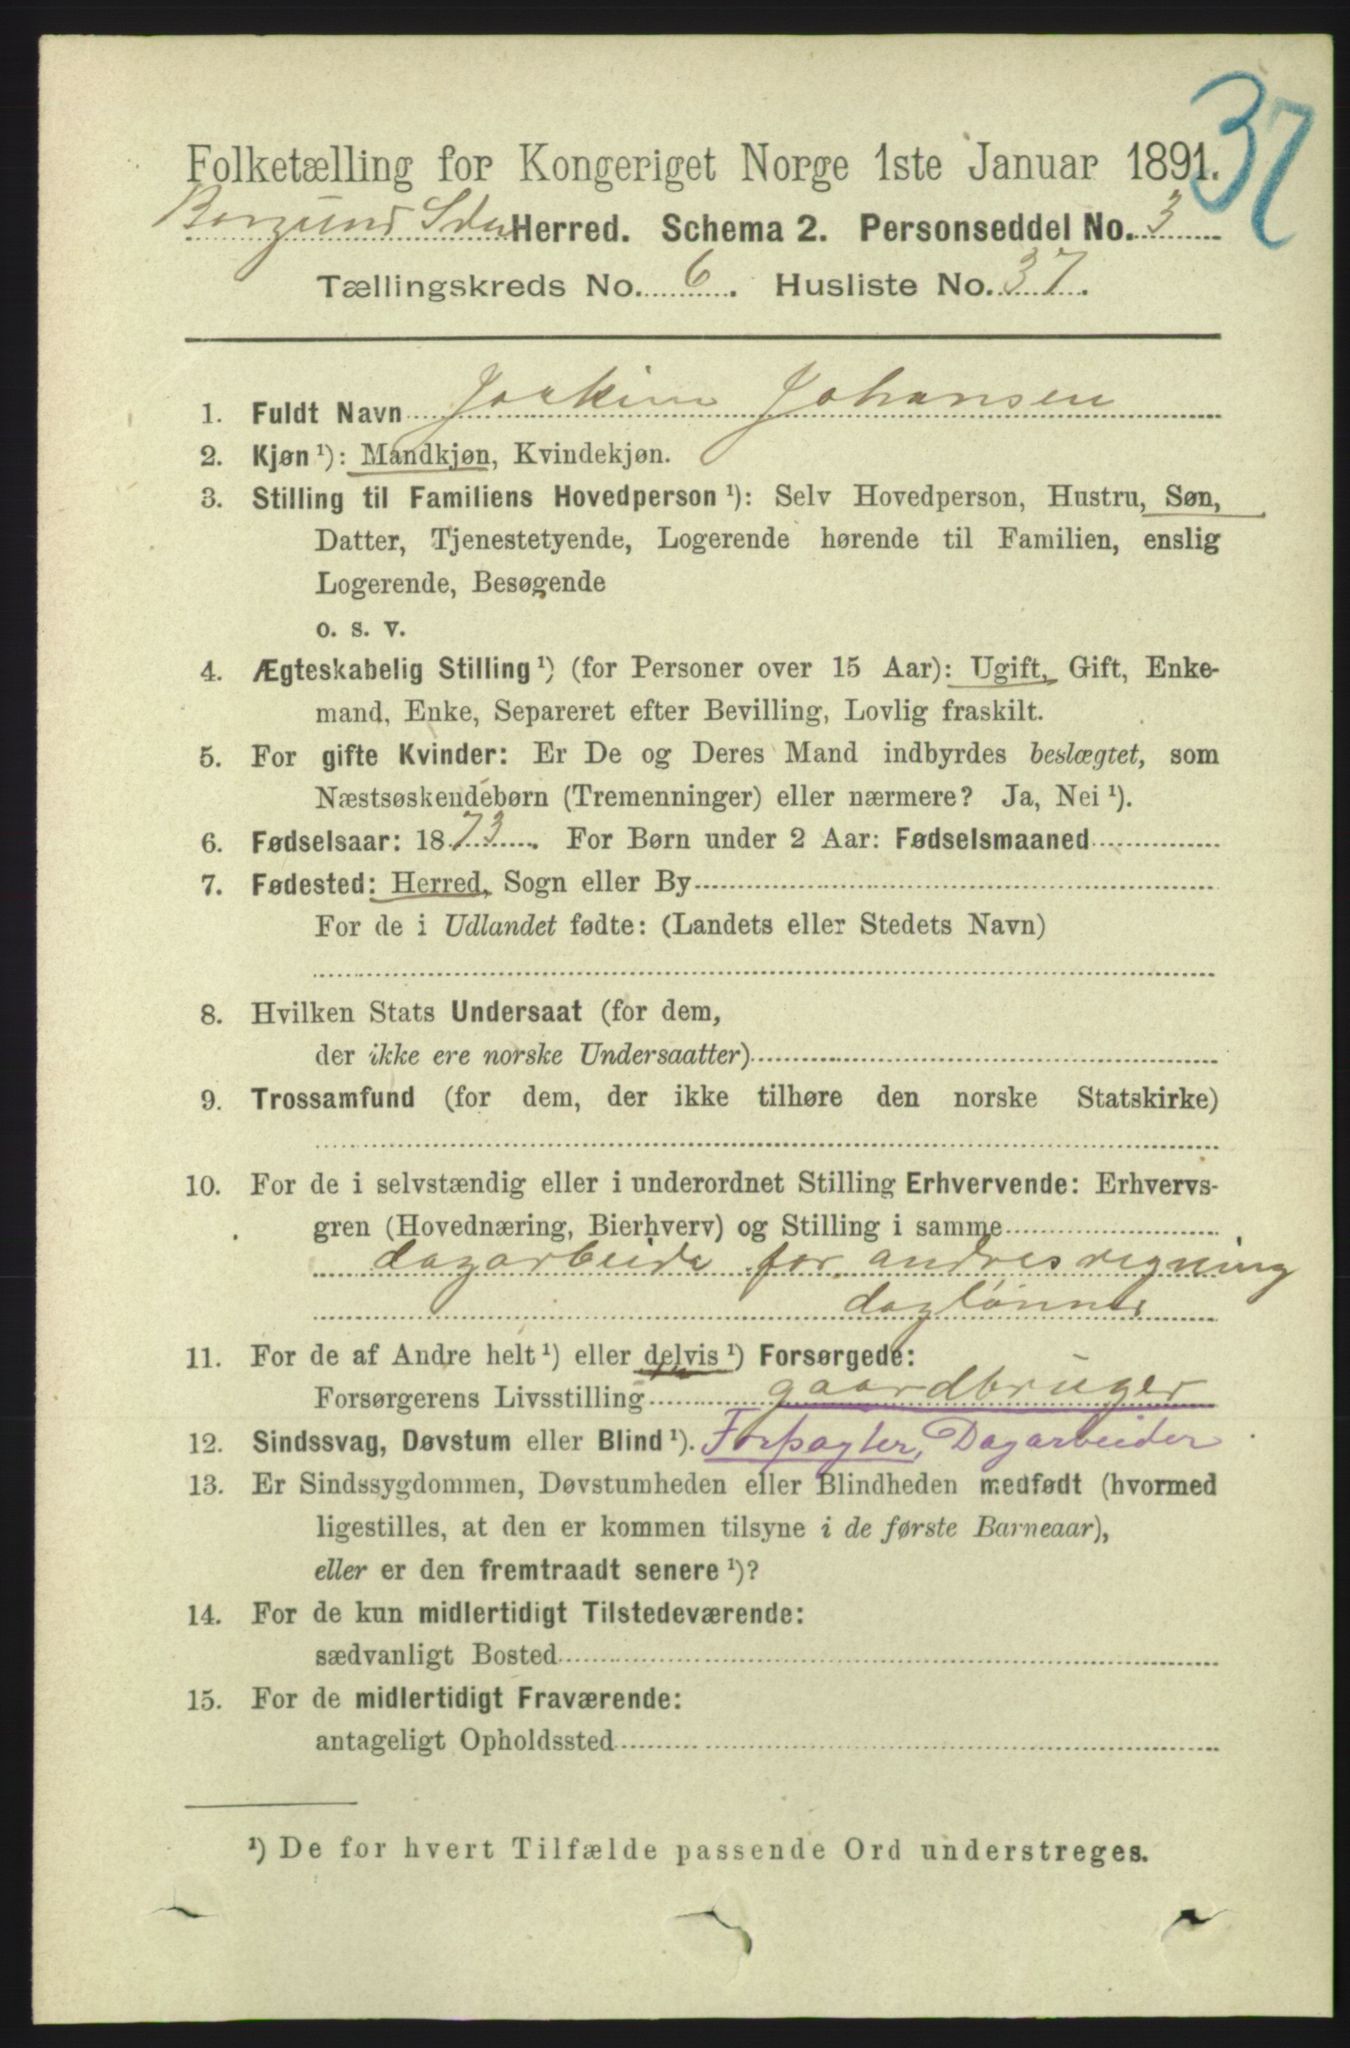 37
Folketælling for Kongeriget Norge 1ste Januar 1891.
Borgund Herred. Schema 2. Personseddel No. 3
Tællingskreds No. 6. Husliste No. 37.
1. Fuldt Navn Joakim Johansen
2. Kjøn ¹): Mandkjøn, Kvindekjøn.
3. Stilling til Familiens Hovedperson ¹): Selv Hovedperson, Hustru, Søn,
Datter, Tjenestetyende, Logerende hørende til Familien, enslig
Logerende, Besøgende
o. s. v.
4. Ægteskabelig Stilling ¹) (for Personer over 15 Aar): Ugift, Gift, Enke-
mand, Enke, Separeret efter Bevilling, Lovlig fraskilt.
5. For gifte Kvinder: Er De og Deres Mand indbyrdes beslægtet, som
Næstsøskendebørn (Tremenninger) eller nærmere? Ja, Nei ¹).
6. Fødselsaar: 1873. For Børn under 2 Aar: Fødselsmaaned
7. Fødested: Herred, Sogn eller By
For de i Udlandet fødte: (Landets eller Stedets Navn)
8. Hvilken Stats Undersaat (for dem,
der ikke ere norske Undersaatter)
9. Trossamfund (for dem, der ikke tilhøre den norske Statskirke)
10. For de i selvstændig eller i underordnet Stilling Erhvervende: Erhvervs-
gren (Hovednæring, Bierhverv) og Stilling i samme
dagarbeide for andres regning
daglønner
11. For de af Andre helt ¹) eller delvis ¹) Forsørgede:
Forsørgerens Livsstilling gaardbruger
12. Sindssvag, Døvstum eller Blind ¹). Forpagter, Dagarbeider
13. Er Sindssygdommen, Døvstumheden eller Blindheden medfødt (hvormed
ligestilles, at den er kommen tilsyne i de første Barneaar),
eller er den fremtraadt senere ¹)?
14. For de kun midlertidigt Tilstedeværende:
sædvanligt Bosted
15. For de midlertidigt Fraværende:
antageligt Opholdssted
¹) De for hvert Tilfælde passende Ord understreges.